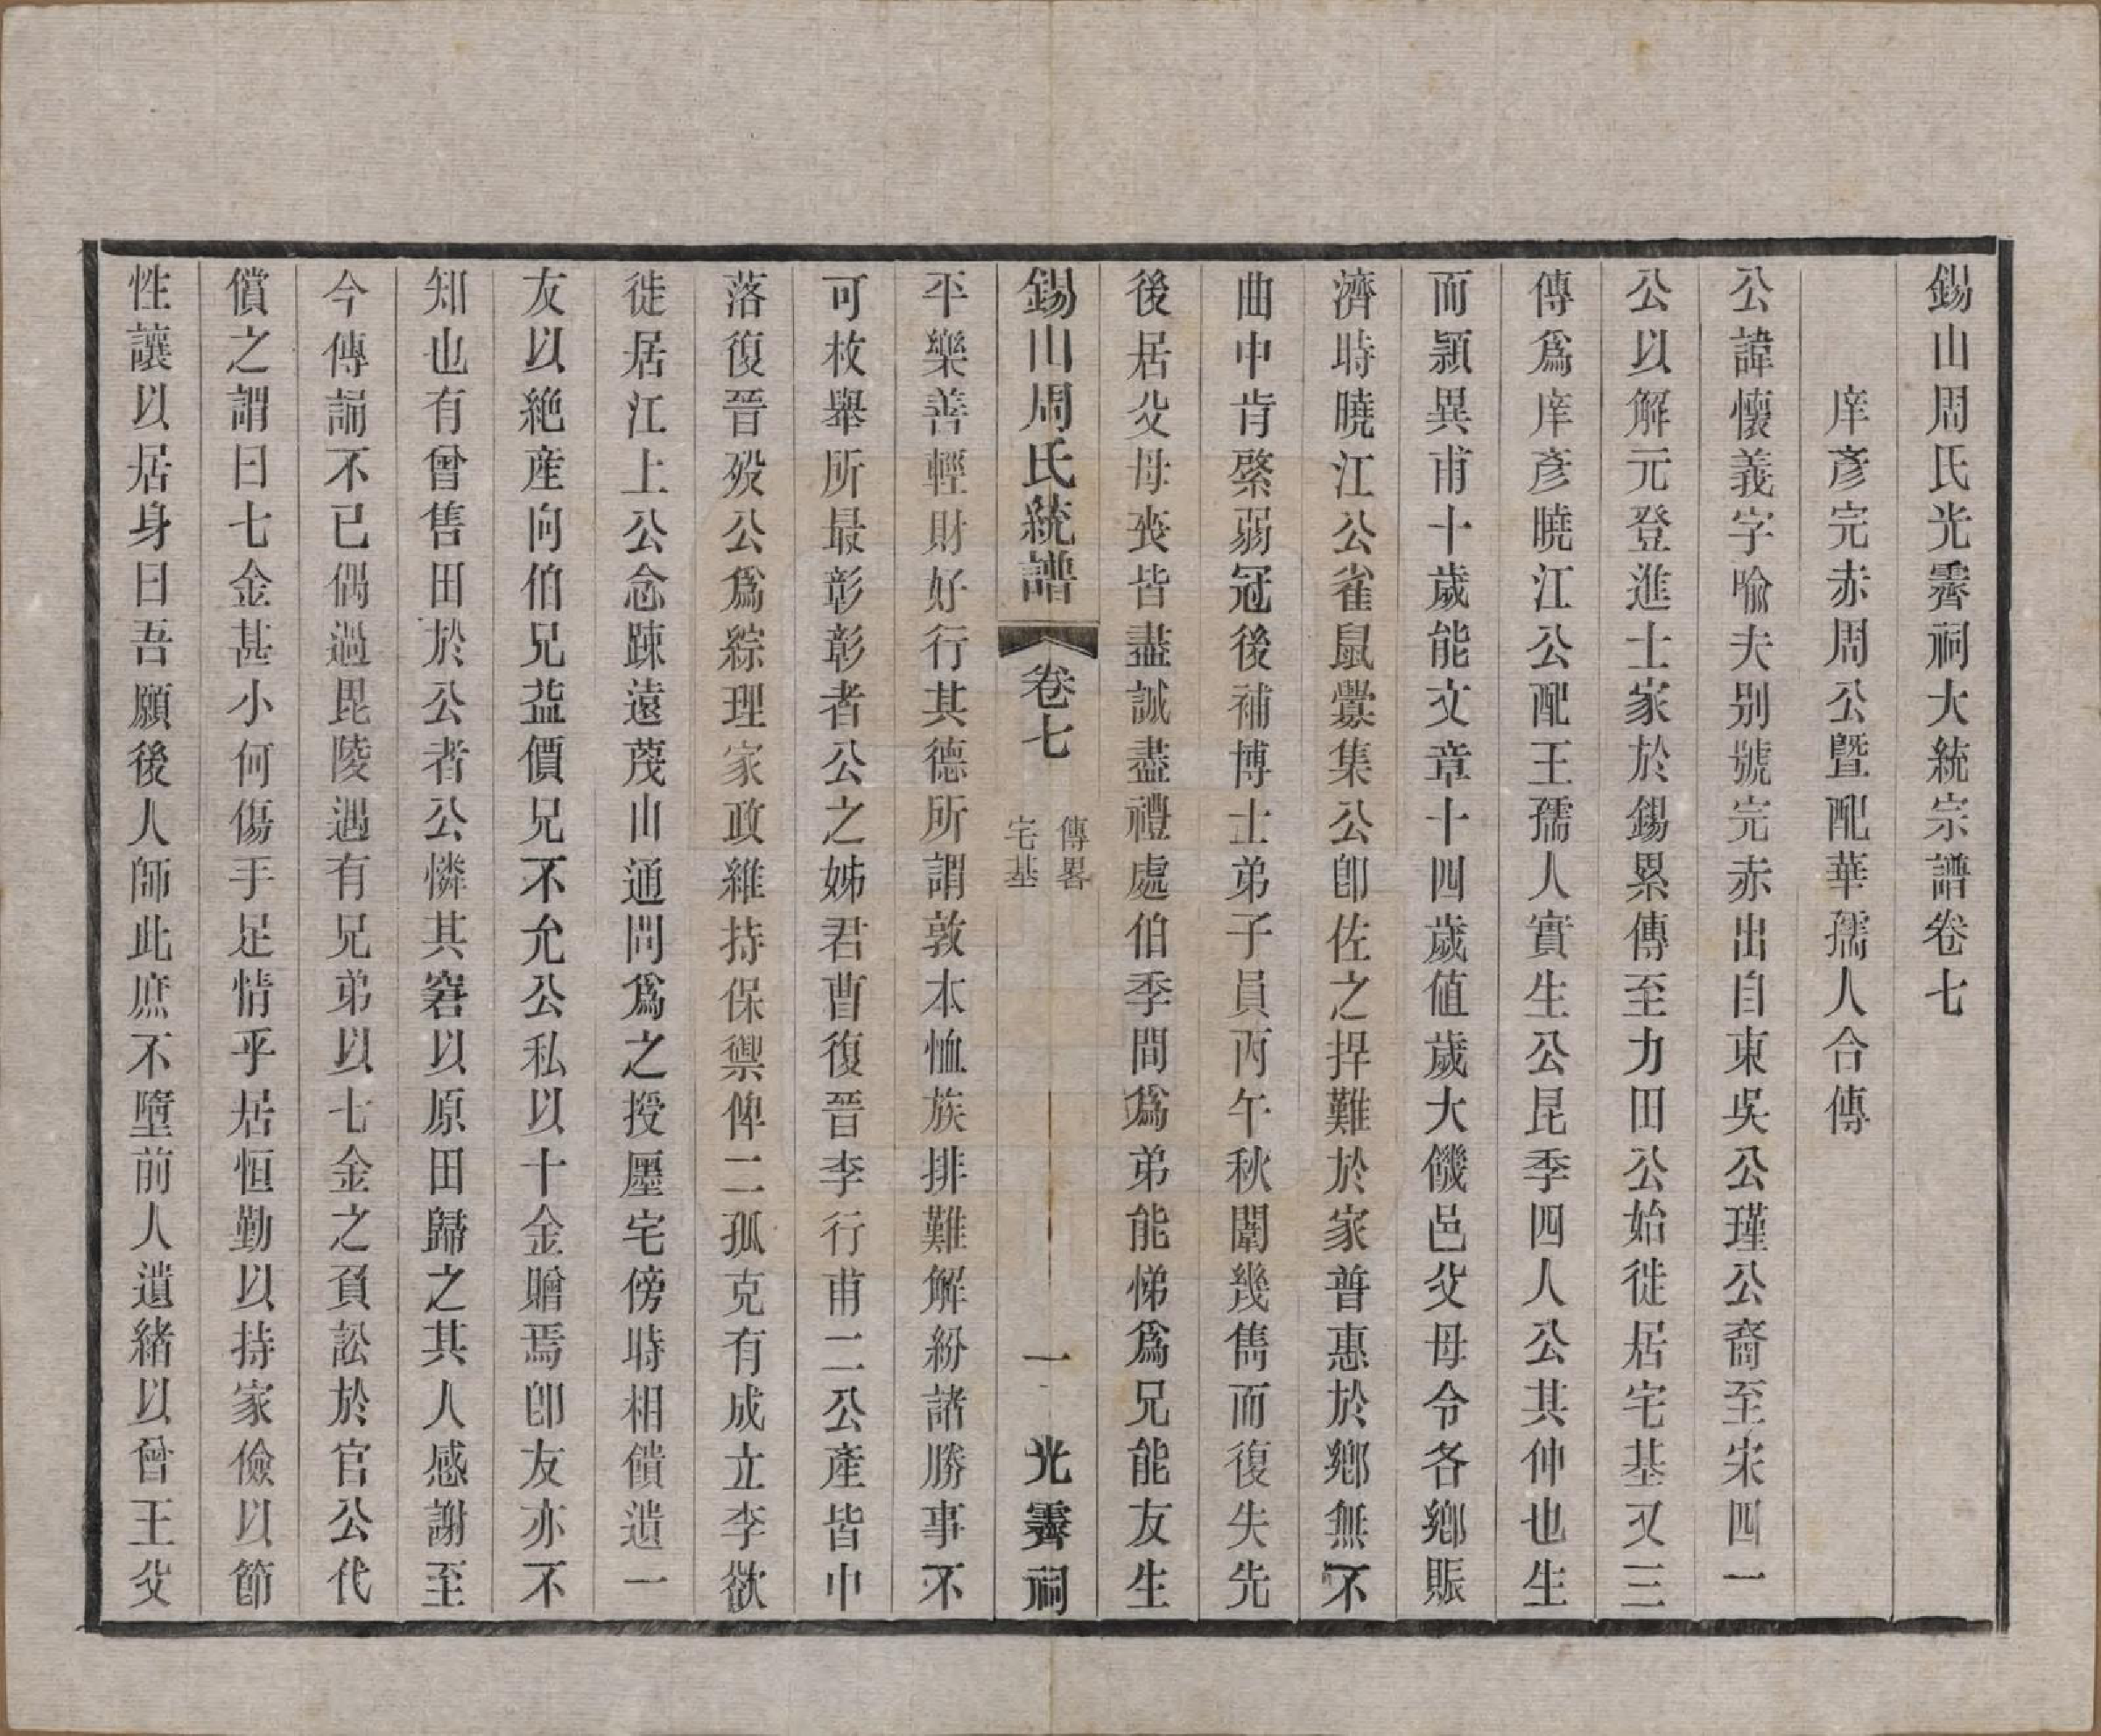 錫山周氏光霽祠大統宗譜卷七
庠彥完赤周公暨配華孺人合傳
公諱懷義字喻夫别號完赤出自東吳公瑾公裔至宋四一
公以解元登進士家於錫累傳至力田公始徙居宅基又三
傳爲庠彥曉江公配王孺人實生公昆季四人公其仲也生
而穎異甫十歲能文章十四歲値歲大饑邑父母令各鄉賑
濟時曉江公雀鼠釁集公卽佐之捍難於家普惠於鄉無不
曲中肯綮弱冠後補博士弟子員丙午秋闈幾雋而復失先
後居父母喪皆盡誠盡禮處伯季間爲弟能悌爲兄能友生
錫山周氏統譜
卷七
傳畧
宅基
一
光霽祠
平樂善輕財好行其德所謂敦本恤族排難解紛諸勝事不
可枚舉所最彰彰者公之姊君曹復晉李行甫二公產皆中
落復晉歿公爲綜理家政維持保禦俾二孤克有成立李欲
徙居江上公念踈遠茂山通問爲之授廛宅傍時相饋遺一
友以絶産向伯兄益價兄不允公私以十金贈焉卽友亦不
知也有曾售田於公者公憐其窘以原田歸之其人感謝至
今傳誦不已偶過毘陵遇有兄弟以七金之負訟於官公代
償之謂曰七金甚小何傷手足情乎居恒勤以持家儉以節
性讓以居身曰吾願後人師此庶不墮前人遺緒以曾王父